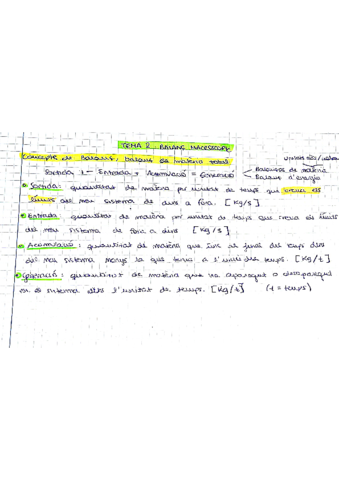 TEMA 2. BALANÇ MACROSCOPIC
Concepte de Balanç; balanç de matèria total
Sortida - Entrada + Acumulació = Generació
Balanços de matèria
Balanç d'energia
Sortida: quantitat de matèria per unitat de temps que creua els
límits del meu sistema de dins a fora. [Kg/s]
Entrada: quantitat de matèria per unitat de temps que creua els límits
del meu sistema de fora a dins [Kg/s].
Acumulació: quantitat de matèria que tinc al final del temps dins
del meu sistema menys la que tenia a l'inici del temps. [Kg/t]
Generació: quantitat de matèria que ha aparegut o desaparegut
en el sistema dins l'unitat de temps. [Kg/t] (t = temps)